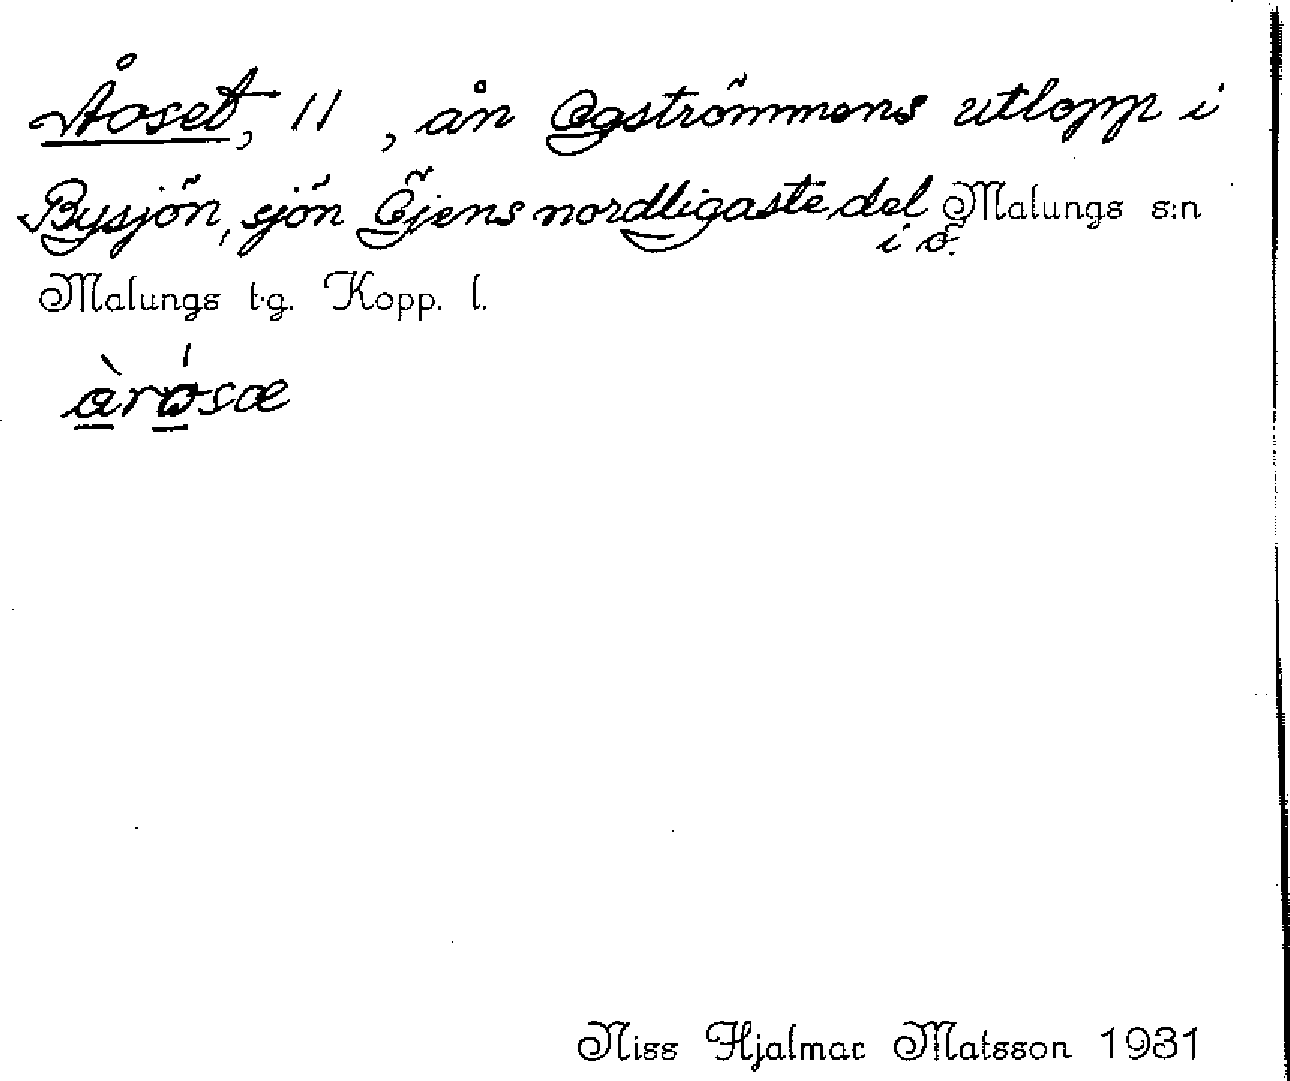 Åoset, 11 , ån Ogströmmens utlopp i
Bysjön, sjön Öjens nordligaste del Malungs s:n
i ö.
Malungs t.g. Kopp. l.
àrósæ
Niss Hjalmar Matsson 1931